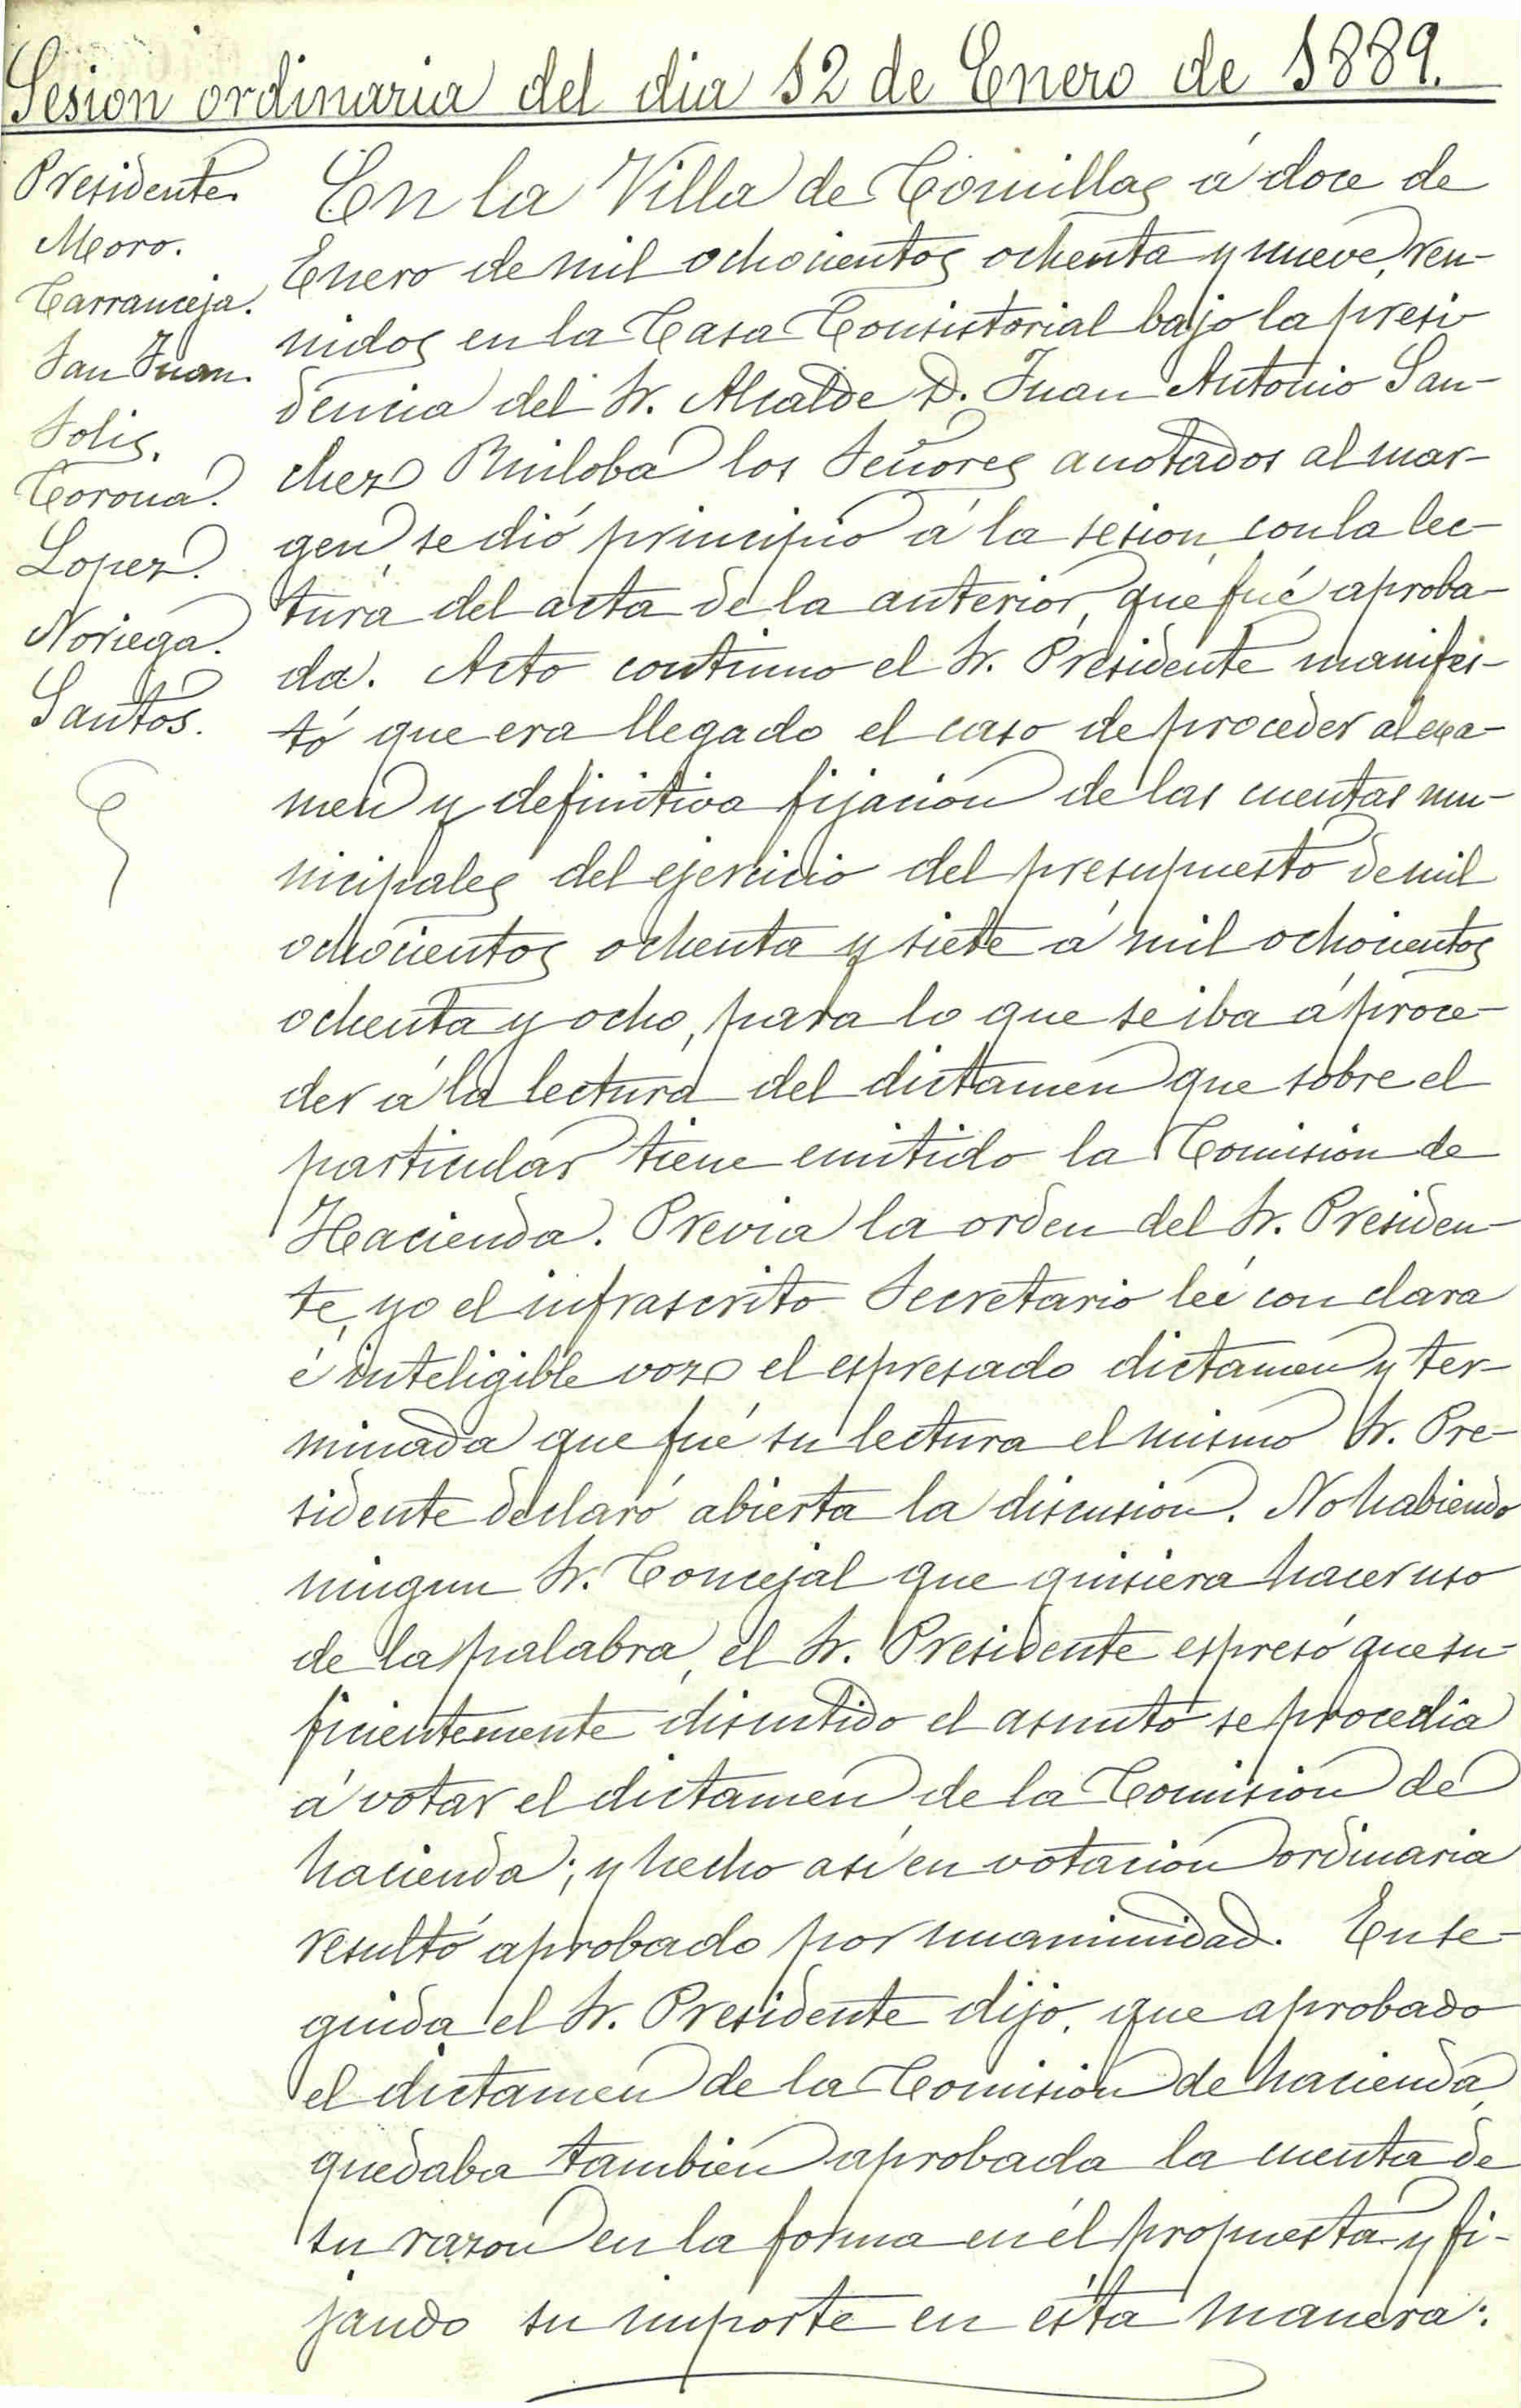 Sesion ordinaria del dia 12 de Enero de 1889.
Presidente.
Moro.
Carranceja.
San Juan.
Solis.
Corona.
Lopez.
Noriega.
Santos.
En la Villa de Comillas á doce de
Enero de mil ochocientos ochenta y nueve, reu-
nidos en la Casa Consistorial bajo la presi-
dencia del Sr. Alcalde D. Juan Antonio San-
chez Ruiloba los Señores anotados al mar-
gen, se dió principio á la sesion, con la lec-
tura del acta de la anterior, que fué aproba-
da. Acto continuo el Sr. Presidente manifes-
tó que era llegado el caso de proceder al exa-
men y definitiva fijacion de las cuentas mu-
nicipales del ejercicio del presupuesto de mil
ochocientos ochenta y siete á mil ochocientos
ochenta y ocho, para lo que se iba á proce-
der á la lectura del dictamen que sobre el
particular tiene emitido la Comision de
Hacienda. Previa la orden del Sr. Presiden-
te, yo el infrascrito Secretario leí con clara
é inteligible voz el espresado dictamen y ter-
minada que fué su lectura el mismo Sr. Pre-
sidente declaró abierta la discusion. No habiendo
ningun Sr. Concejal que quisiera hacer uso
de la palabra, el Sr. Presidente espresó que su-
ficientemente discutido el asunto se procedia
á votar el dictamen de la Comision de
hacienda; y hecho asi en votacion ordinaria
resultó aprobado por unanimidad. Ense-
guida el Sr. Presidente dijo, que aprobado
el dictamen de la Comision de hacienda,
quedaba tambien aprobada la cuenta de
su razon en la forma en él propuesta y fi-
jando su importe en ésta manera: